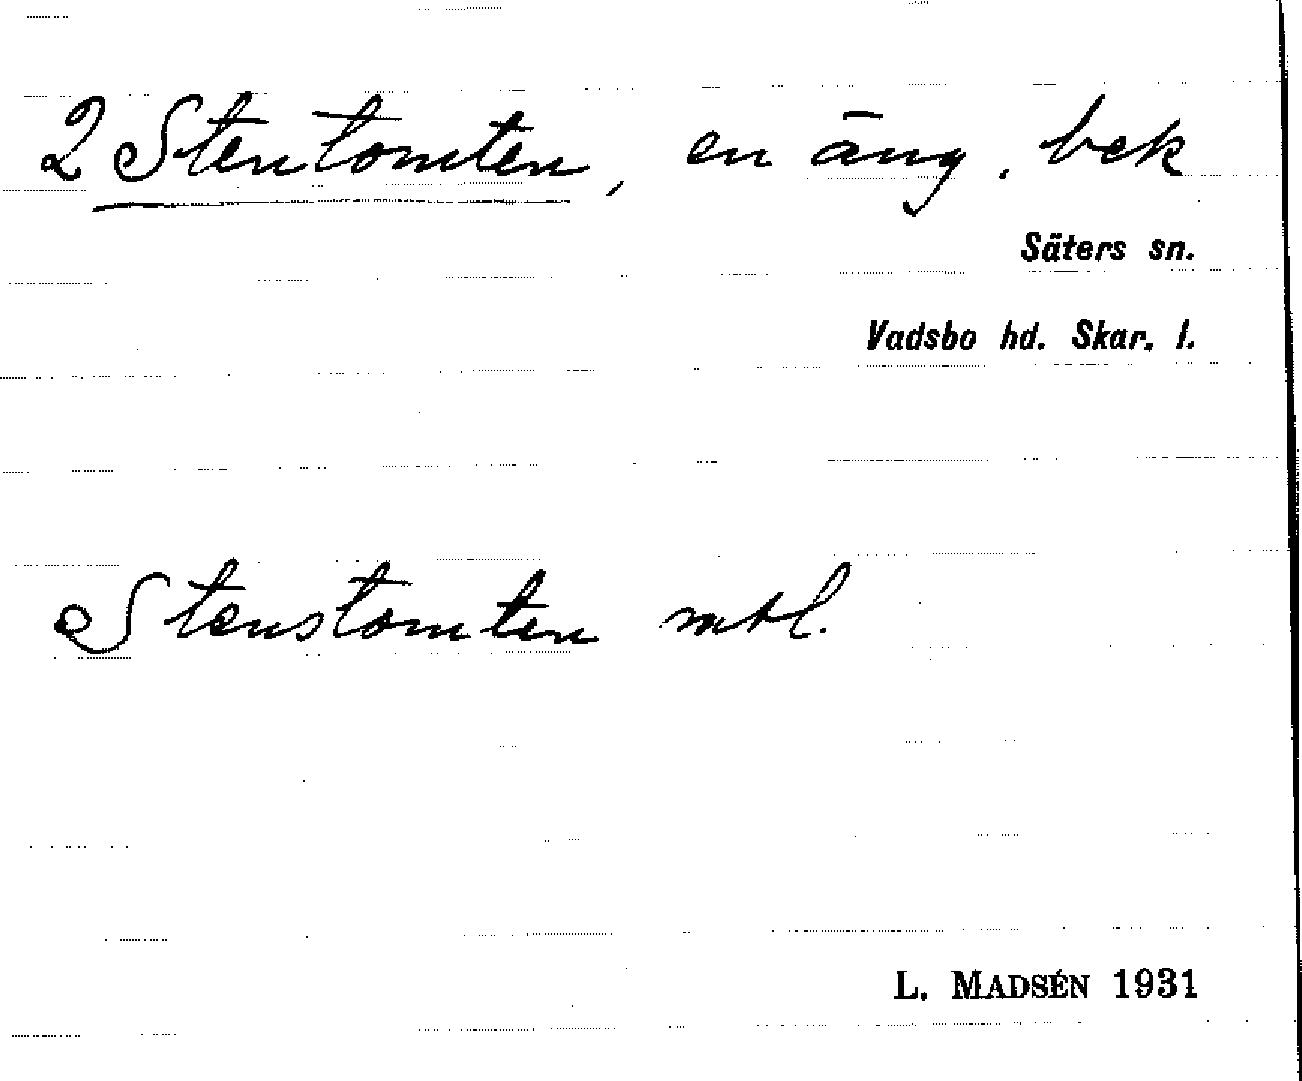 2 Stentomten, en äng. bek
Säters sn.
Vadsbo hd. Skar. l.
Stenstomten mtl.
L. MADSÉN 1931